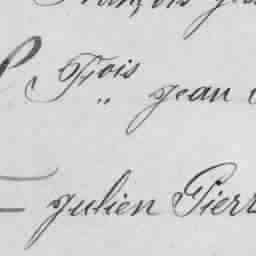 François
Fçois jean
julien Pierr